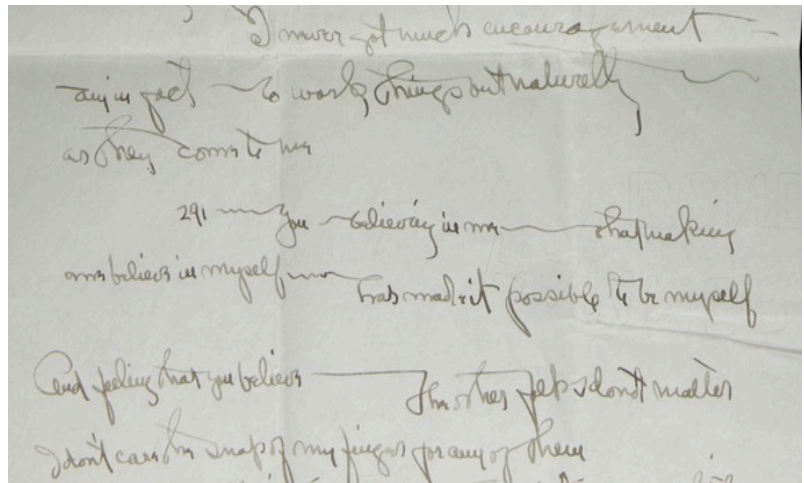 I never got much encouragement —
any in fact — to work things out naturally
as they come to me
291 — you — believing in me — that making
me believe in myself — has made it possible to be myself
And feeling that you believe — the other folks dont matter
I don't care the snap of my finger for any of them